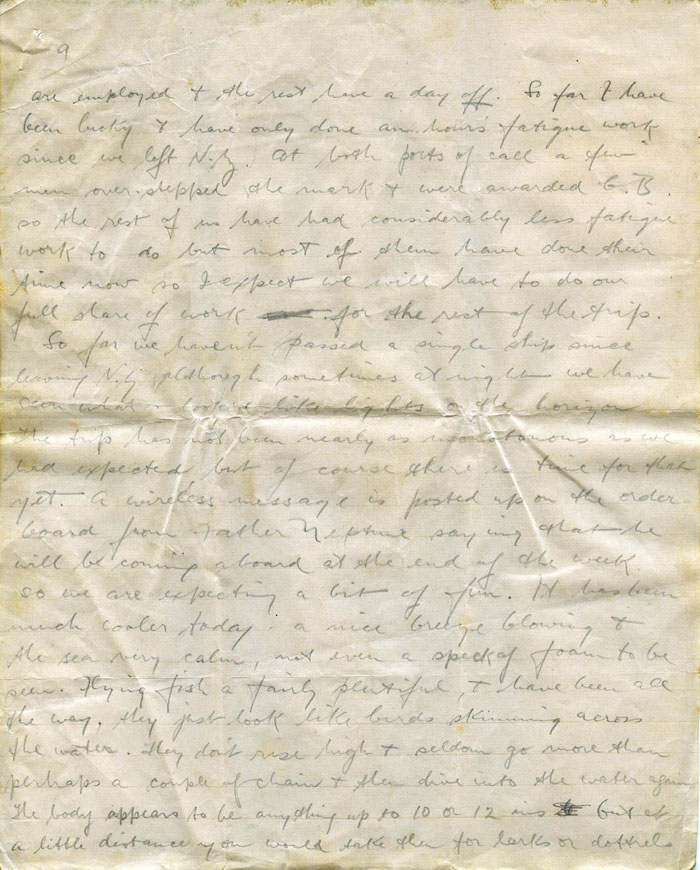 9
are employed & the rest have a day off. So far I have
been lucky & have only done an hours fatigue work
since we left N.Z. At both ports of call a few
men over-stepped the mark & were awarded C.B.
so the rest of us have had considerably less fatigue
work to do but most of them have done their
time now so I expect we will have to do our
full share of work for the rest of the trip.
So far we haven't passed a single ship since
leaving N.Z. although sometimes at night we have
seen what looked like lights on the horizon
The trip has not been nearly as monotonous as we
had expected but of course there is time for that
yet. A wireless message is posted up on the order
board from Father Neptune saying that he
will be coming aboard at the end of the week
so we are expecting a bit of fun. It has been
much cooler today - a nice breeze blowing &
the sea very calm, not even a speck of foam to be
seen. Flying fish a fairly plentiful, & have been all
the way. They just look like birds skimming across
the water. They don't rise high & seldom go more than
perhaps a couple of chain & then dive into the water again
The body appears to be anything up to 10 or 12 ins but at
a little distance you would take them for larks or dottrels